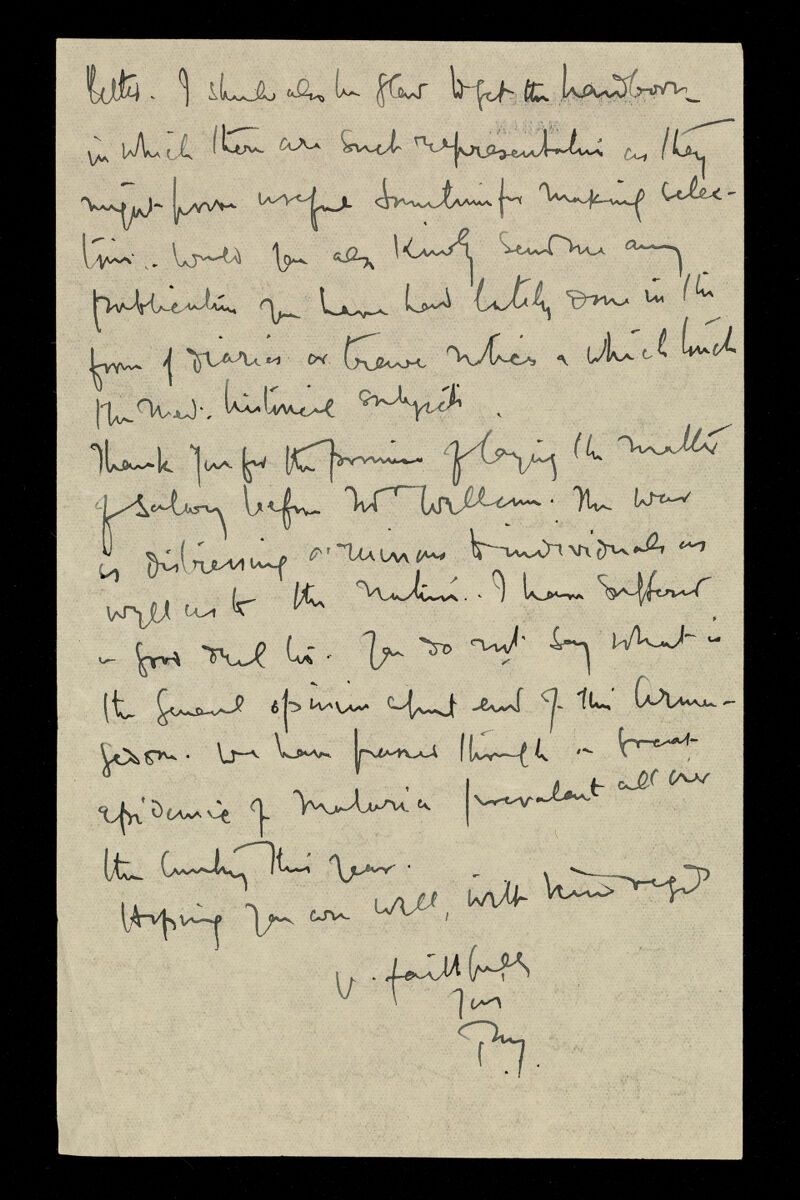 better. I should also be glad to get the handbook
in which there are such representations as they
might prove useful sometime for making selec-
tions. Would you also kindly send me any
publication you have had lately done in the
form of diaries or travel notices which touch
the Med. historical subjects.
Thank you for the promise of laying the matter
of salary before Mr Wellcome. The war
is distressing & ruinous to individuals as
well as to the nation. I have suffered
a good deal too. You do not say what is
the general opinion about end of this Arma-
gedon. We have passed through a great
epidemic of Malaria prevalent all over
the country this year.
Hoping you are well, with kind regds
V. faithfully
Yours